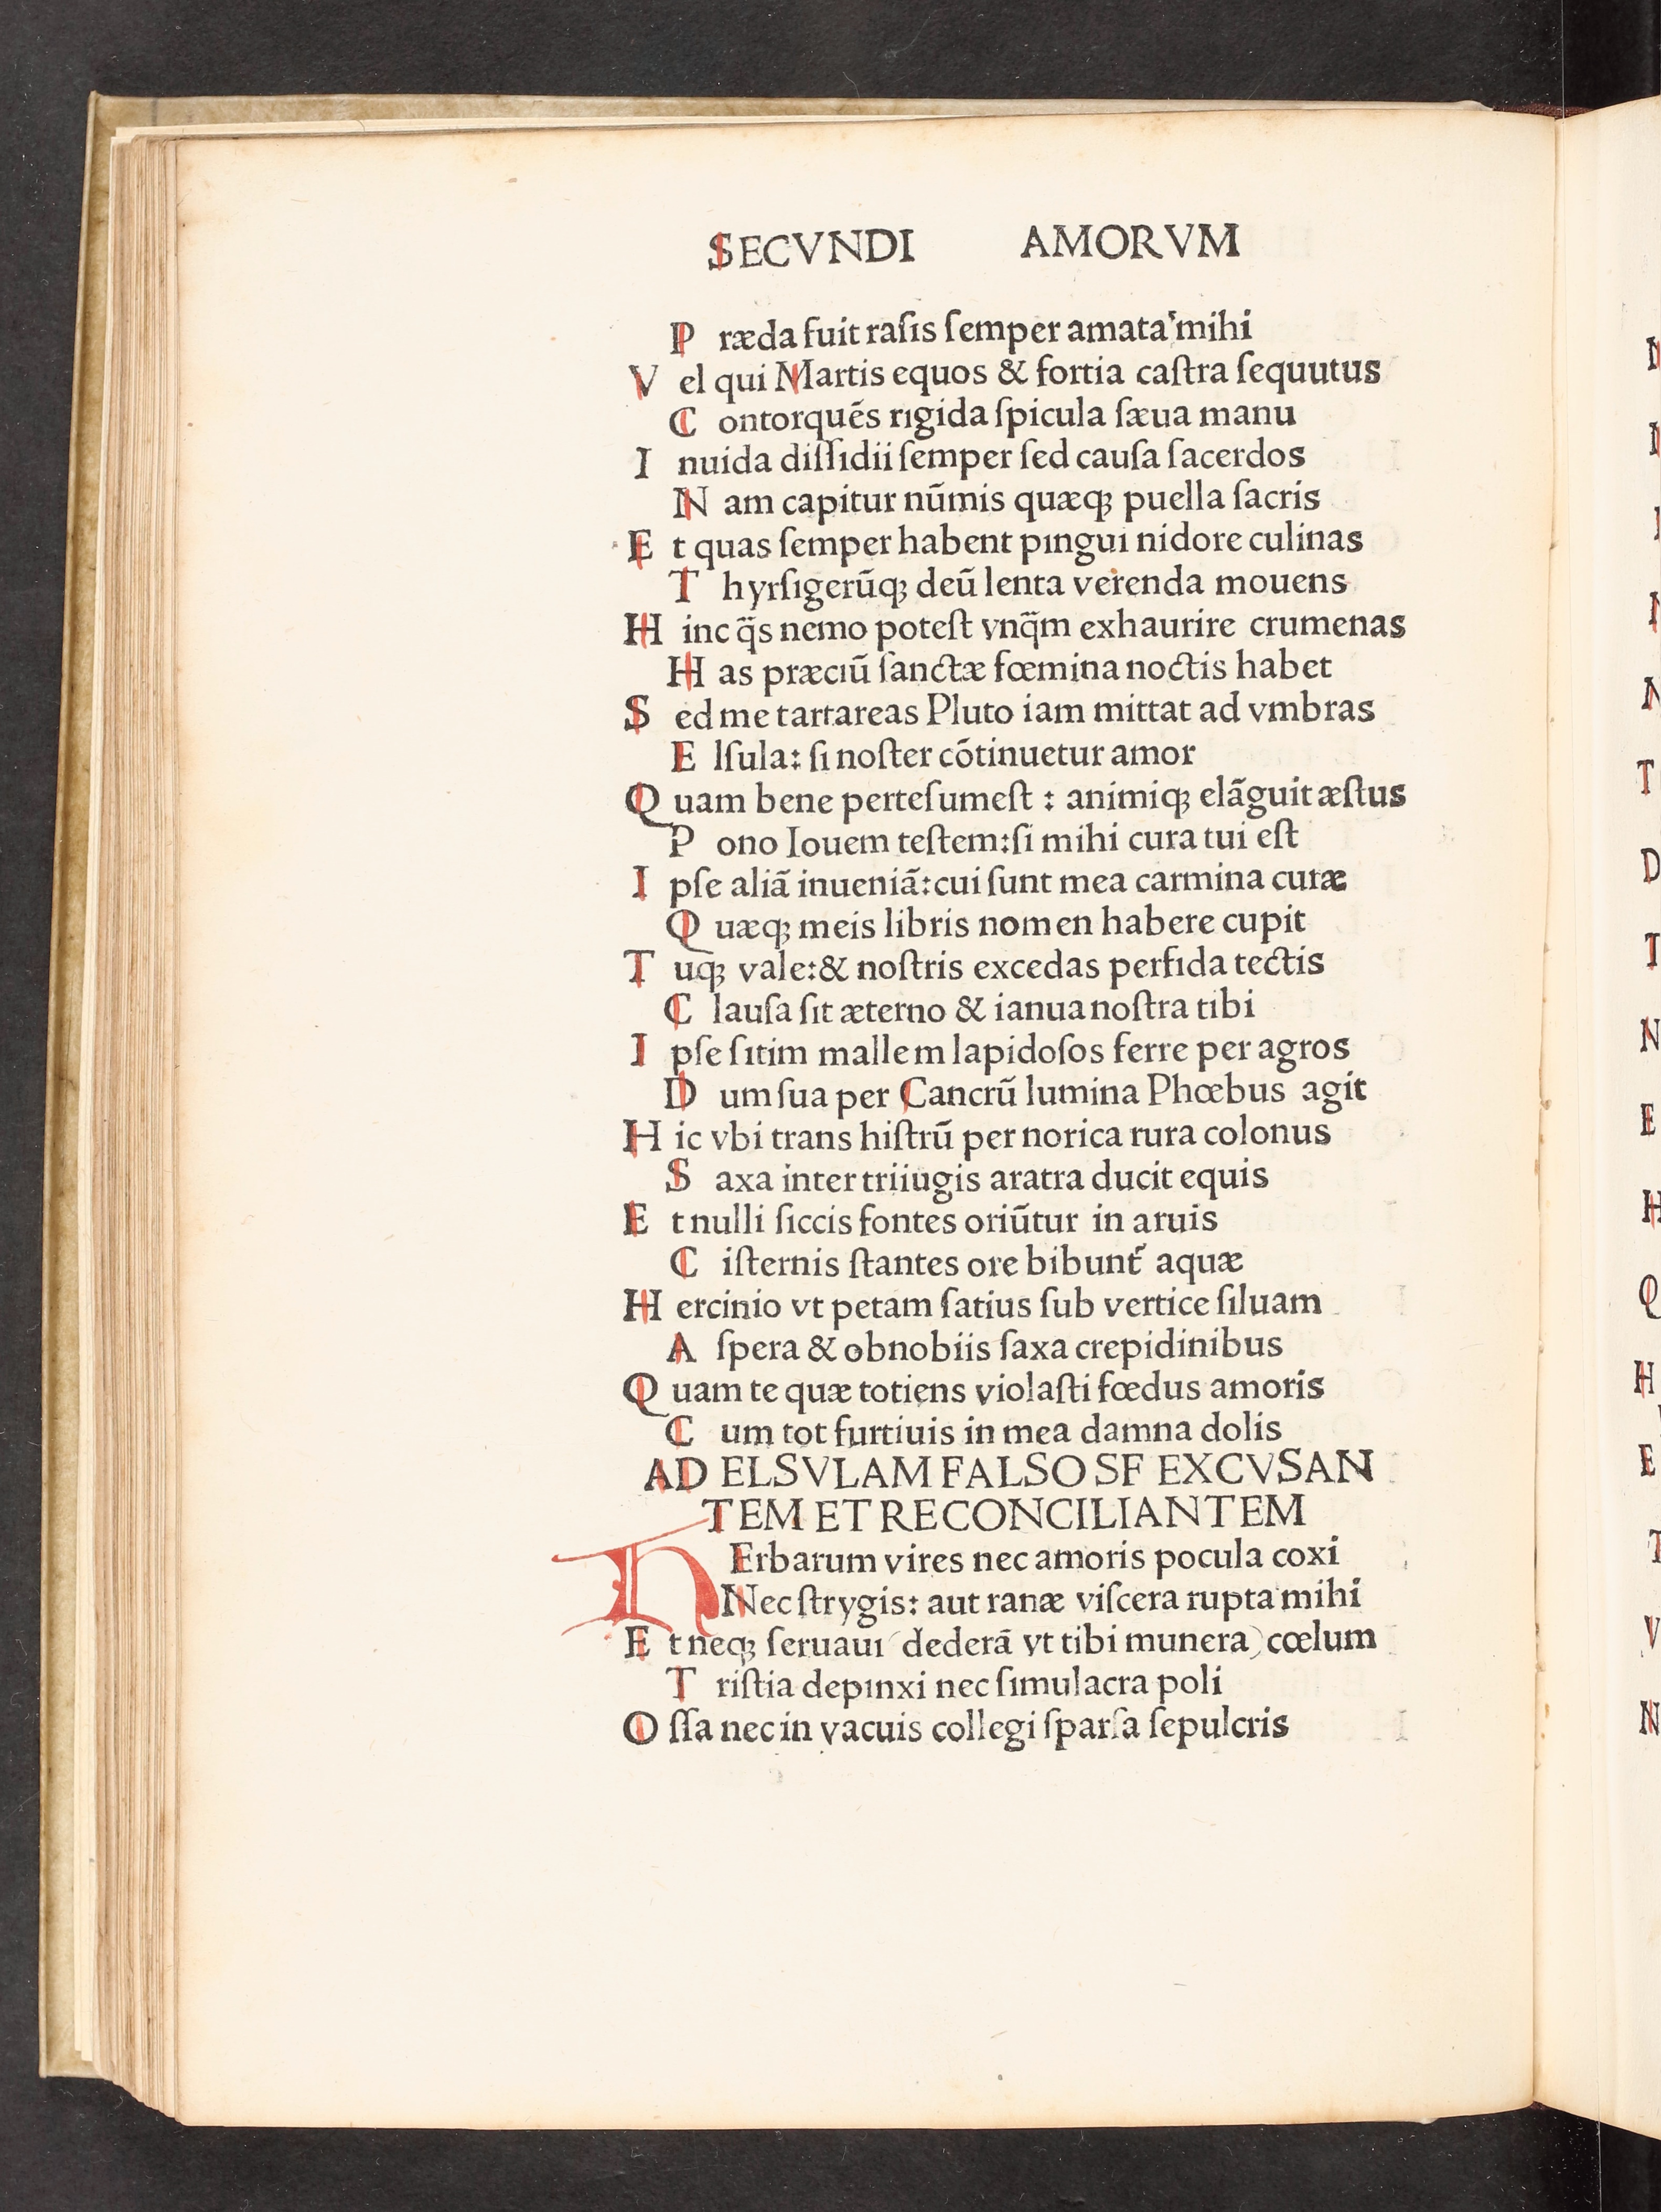 SECVNDI AMORVM
P ræda fuit raſis ſemper amata mihi
V el qui Martis equos & fortia caſtra ſequutus
C ontorquẽs rigida ſpicula ſæua manu
I nuida diſſidii ſemper ſed cauſa ſacerdos
N am capitur nũmis quæqꝫ puella ſacris
E t quas ſemper habent pingui nidore culinas
T hyrſigerũqꝫ deũ lenta verenda mouens
H inc q̃s nemo poteſt vnq̃m exhaurire crumenas
H as præciũ ſanctæ fœmina noctis habet
S ed me tartareas Pluto iam mittat ad vmbras
E lſula: ſi noſter cõtinuetur amor
Q uam bene perteſumeſt : animiqꝫ elãguit æſtus
P ono Iouem teſtem:ſi mihi cura tui eſt
I pſe aliã inueniã:cui ſunt mea carmina curæ
Q uæqꝫ meis libris nomen habere cupit
T uqꝫ vale:& noſtris excedas perfida tectis
C lauſa ſit æterno & ianua noſtra tibi
I pſe ſitim mallem lapidoſos ferre per agros
D um ſua per Cancrũ lumina Phœbus agit
H ic vbi trans hiſtrũ per norica rura colonus
S axa inter triiugis aratra ducit equis
E t nulli ſiccis fontes oriũtur in aruis
C iſternis ſtantes ore bibunt᷑ aquæ
H ercinio vt petam ſatius ſub vertice ſiluam
A ſpera & obnobiis ſaxa crepidinibus
Q uam te quæ totiens violaſti fœdus amoris
C um tot furtiuis in mea damna dolis
AD ELSVLAM FALSO SF EXCVSAN
TEM ET RECONCILIANTEM
H Erbarum vires nec amoris pocula coxi
Nec ſtrygis: aut ranæ viſcera rupta mihi
E t neqꝫ ſeruaui (dederã vt tibi munera) cœlum
T riſtia depinxi nec ſimulacra poli
O ſſa nec in vacuis collegi ſparſa ſepulcris